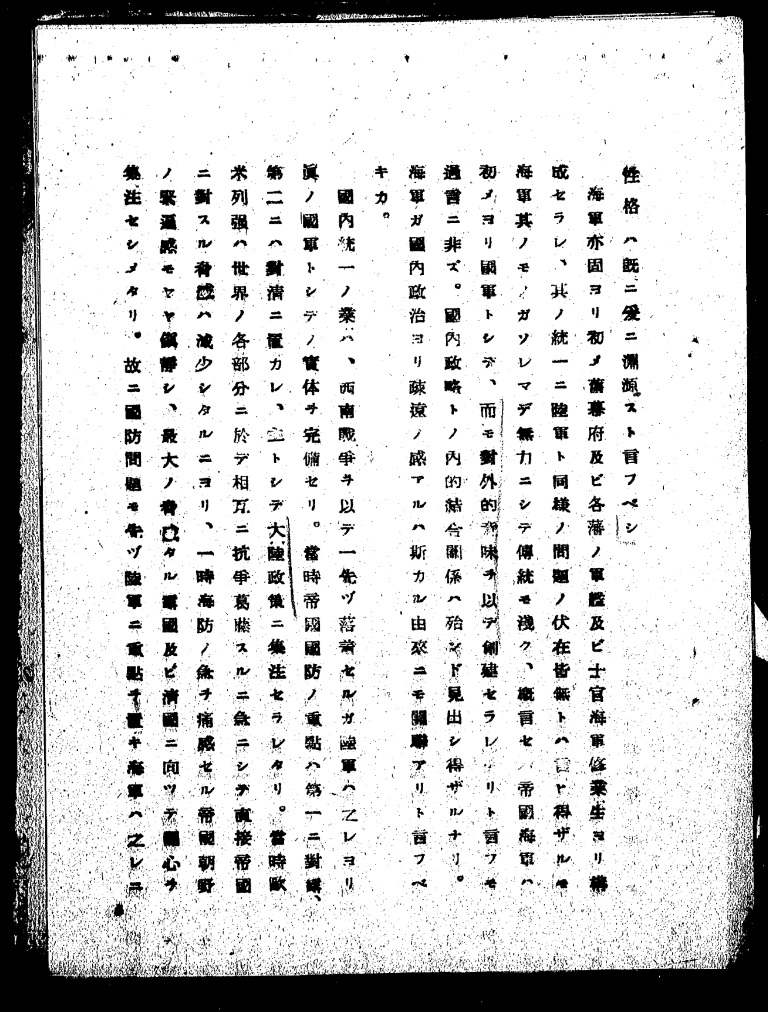 性格ハ既ニ爰ニ淵源スト言フベシ
海軍亦固ヨリ初メ舊幕府及ビ各藩ノ軍艦及ビ士官海軍修業生ヨリ構
成セラレ、其ノ統一ニ陸軍ト同樣ノ問題ノ伏在皆無トハ言ヒ得ザルモ
海軍其ノモノガソレマデ無力ニシテ傳統モ淺ク、概言セバ帝國海軍ハ
初メヨリ國軍トシテ、而モ對外的意味ヲ以テ創建セラレタリト言フモ
過言ニ非ズ。國內政略トノ內的結合關係ハ殆ンド見出シ得ザルナリ。
海軍ガ國內政治ヨリ疎遠ノ感アルハ斯カル由來ニモ關聯アリト言フベ
キカ。
國內統一ノ業ハ、西南戰爭ヲ以テ一先ヅ落着セルガ陸軍ハ之レヨリ
眞ノ國軍トシテノ實体ヲ完備セリ。當時帝國國防ノ重點ハ第一ニ對露、
第二ニハ對淸ニ置カレ、主トシテ大陸政策ニ集注セラレタリ。當時歐
米列强ハ世界ノ各部分ニ於テ相互ニ抗爭葛藤スルニ急ニシテ直接帝國
ニ對スル脅威ハ減少シタルニヨリ、一時海防ノ急ヲ痛感セル帝國朝野
ノ緊迫感モヤヤ鎭靜シ、最大ノ脅威タル露國及ビ淸國ニ向ツテ關心ヲ
集注セシメタリ。故ニ國防問題モ先ヅ陸軍ニ重點ヲ置キ海軍ハ之レニ